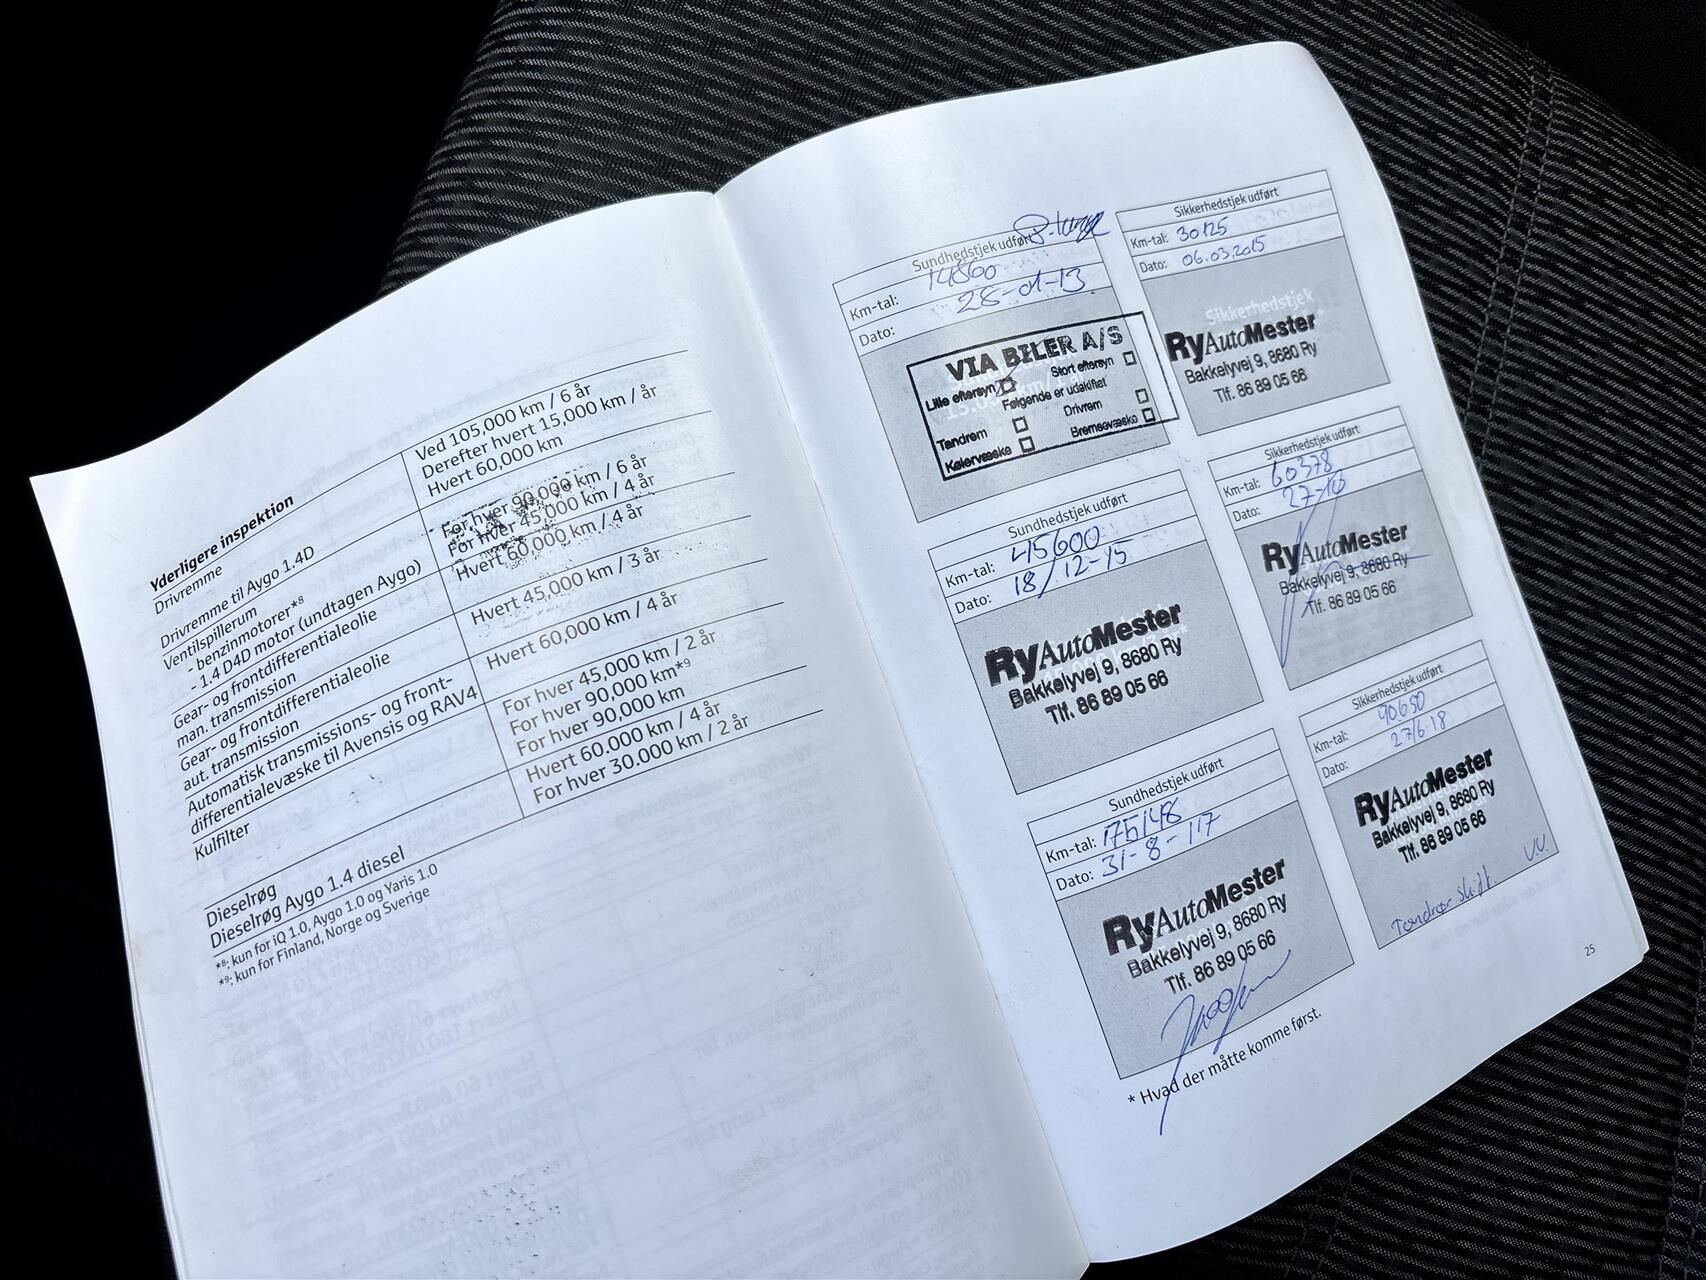 Yderligere inspektion
Drivremme
Ved 105,000 km / 6 år
Derefter hvert 15,000 km / år
Drivremme til Aygo 1.4D
Hvert 60,000 km
Ventilspillerum
- benzinmotorer*⁸
For hver 90,000 km / 6 år
- 1.4 D4D motor (undtagen Aygo)
For hver 45,000 km / 4 år
Gear- og frontdifferentialeolie
man. transmission
Hvert 60,000 km / 4 år
Gear- og frontdifferentialeolie
aut. transmission
Hvert 45,000 km / 3 år
Automatisk transmissions- og front-
differentialevæske til Avensis og RAV4
Hvert 60,000 km / 4 år
Kulfilter
For hver 45,000 km / 2 år
For hver 90,000 km*⁹
For hver 90,000 km
Dieselrøg
Hvert 60.000 km / 4 år
Dieselrøg Aygo 1.4 diesel
For hver 30.000 km / 2 år
*⁸; kun for iQ 1.0, Aygo 1.0 og Yaris 1.0
*⁹; kun for Finland, Norge og Sverige
Sundhedstjek udført
Km-tal: 14860
Dato: 28-01-13
VIA BILER A/S
Lille eftersyn Stort eftersyn
Følgende er udskiftet
Tandrem Drivrem
Kølervæske Bremsevæske
Sikkerhedstjek udført
Km-tal: 30125
Dato: 06.03.2015
Sikkerhedstjek
RyAutoMester
Bakkelyvej 9, 8680 Ry
Tlf. 86 89 05 66
Sundhedstjek udført
Km-tal: 45600
Dato: 18/12-15
RyAutoMester
Bakkelyvej 9, 8680 Ry
Tlf. 86 89 05 66
Sikkerhedstjek udført
Km-tal: 60378
Dato: 27-10
RyAutoMester
Bakkelyvej 9, 8680 Ry
Tlf. 86 89 05 66
Sundhedstjek udført
Km-tal: 75148
Dato: 31-8-17
RyAutoMester
Bakkelyvej 9, 8680 Ry
Tlf. 86 89 05 66
Sikkerhedstjek udført
Km-tal: 90650
Dato: 27/6-18
RyAutoMester
Bakkelyvej 9, 8680 Ry
Tlf. 86 89 05 66
* Hvad der måtte komme først.
25